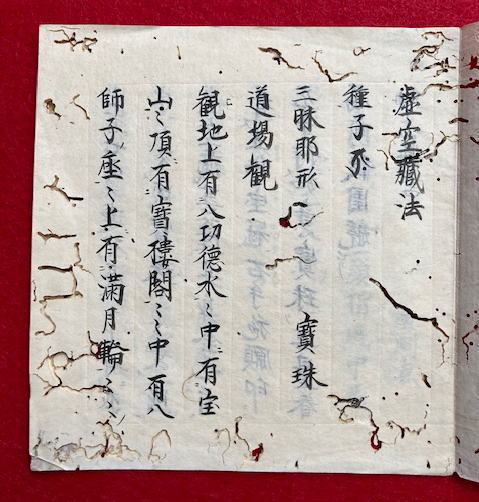 虚空藏法
種子
三昧耶形 寶珠
道場觀
観地上有八功德水〻中有宝
山〻頂有寶樓閣〻〻中有八
師子座〻上有滿月輪〻〻